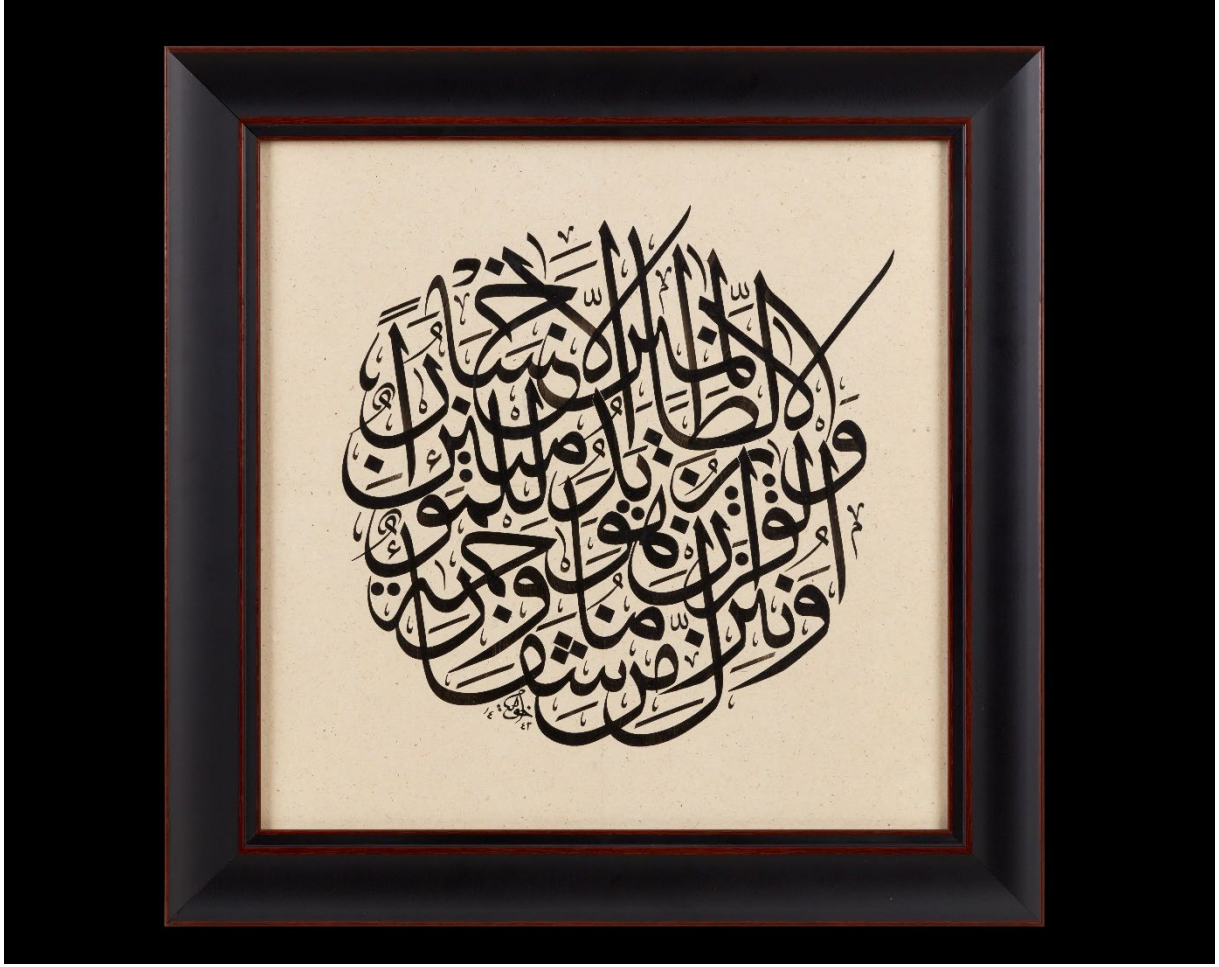 وَنُنَزِّلُ مِنَ الْقُرْآنِ مَا هُوَ شِفَاءٌ وَرَحْمَةٌ لِلْمُؤْمِنِينَ وَلَا يَزِيدُ الظَّالِمِينَ إِلَّا خَسَارًا